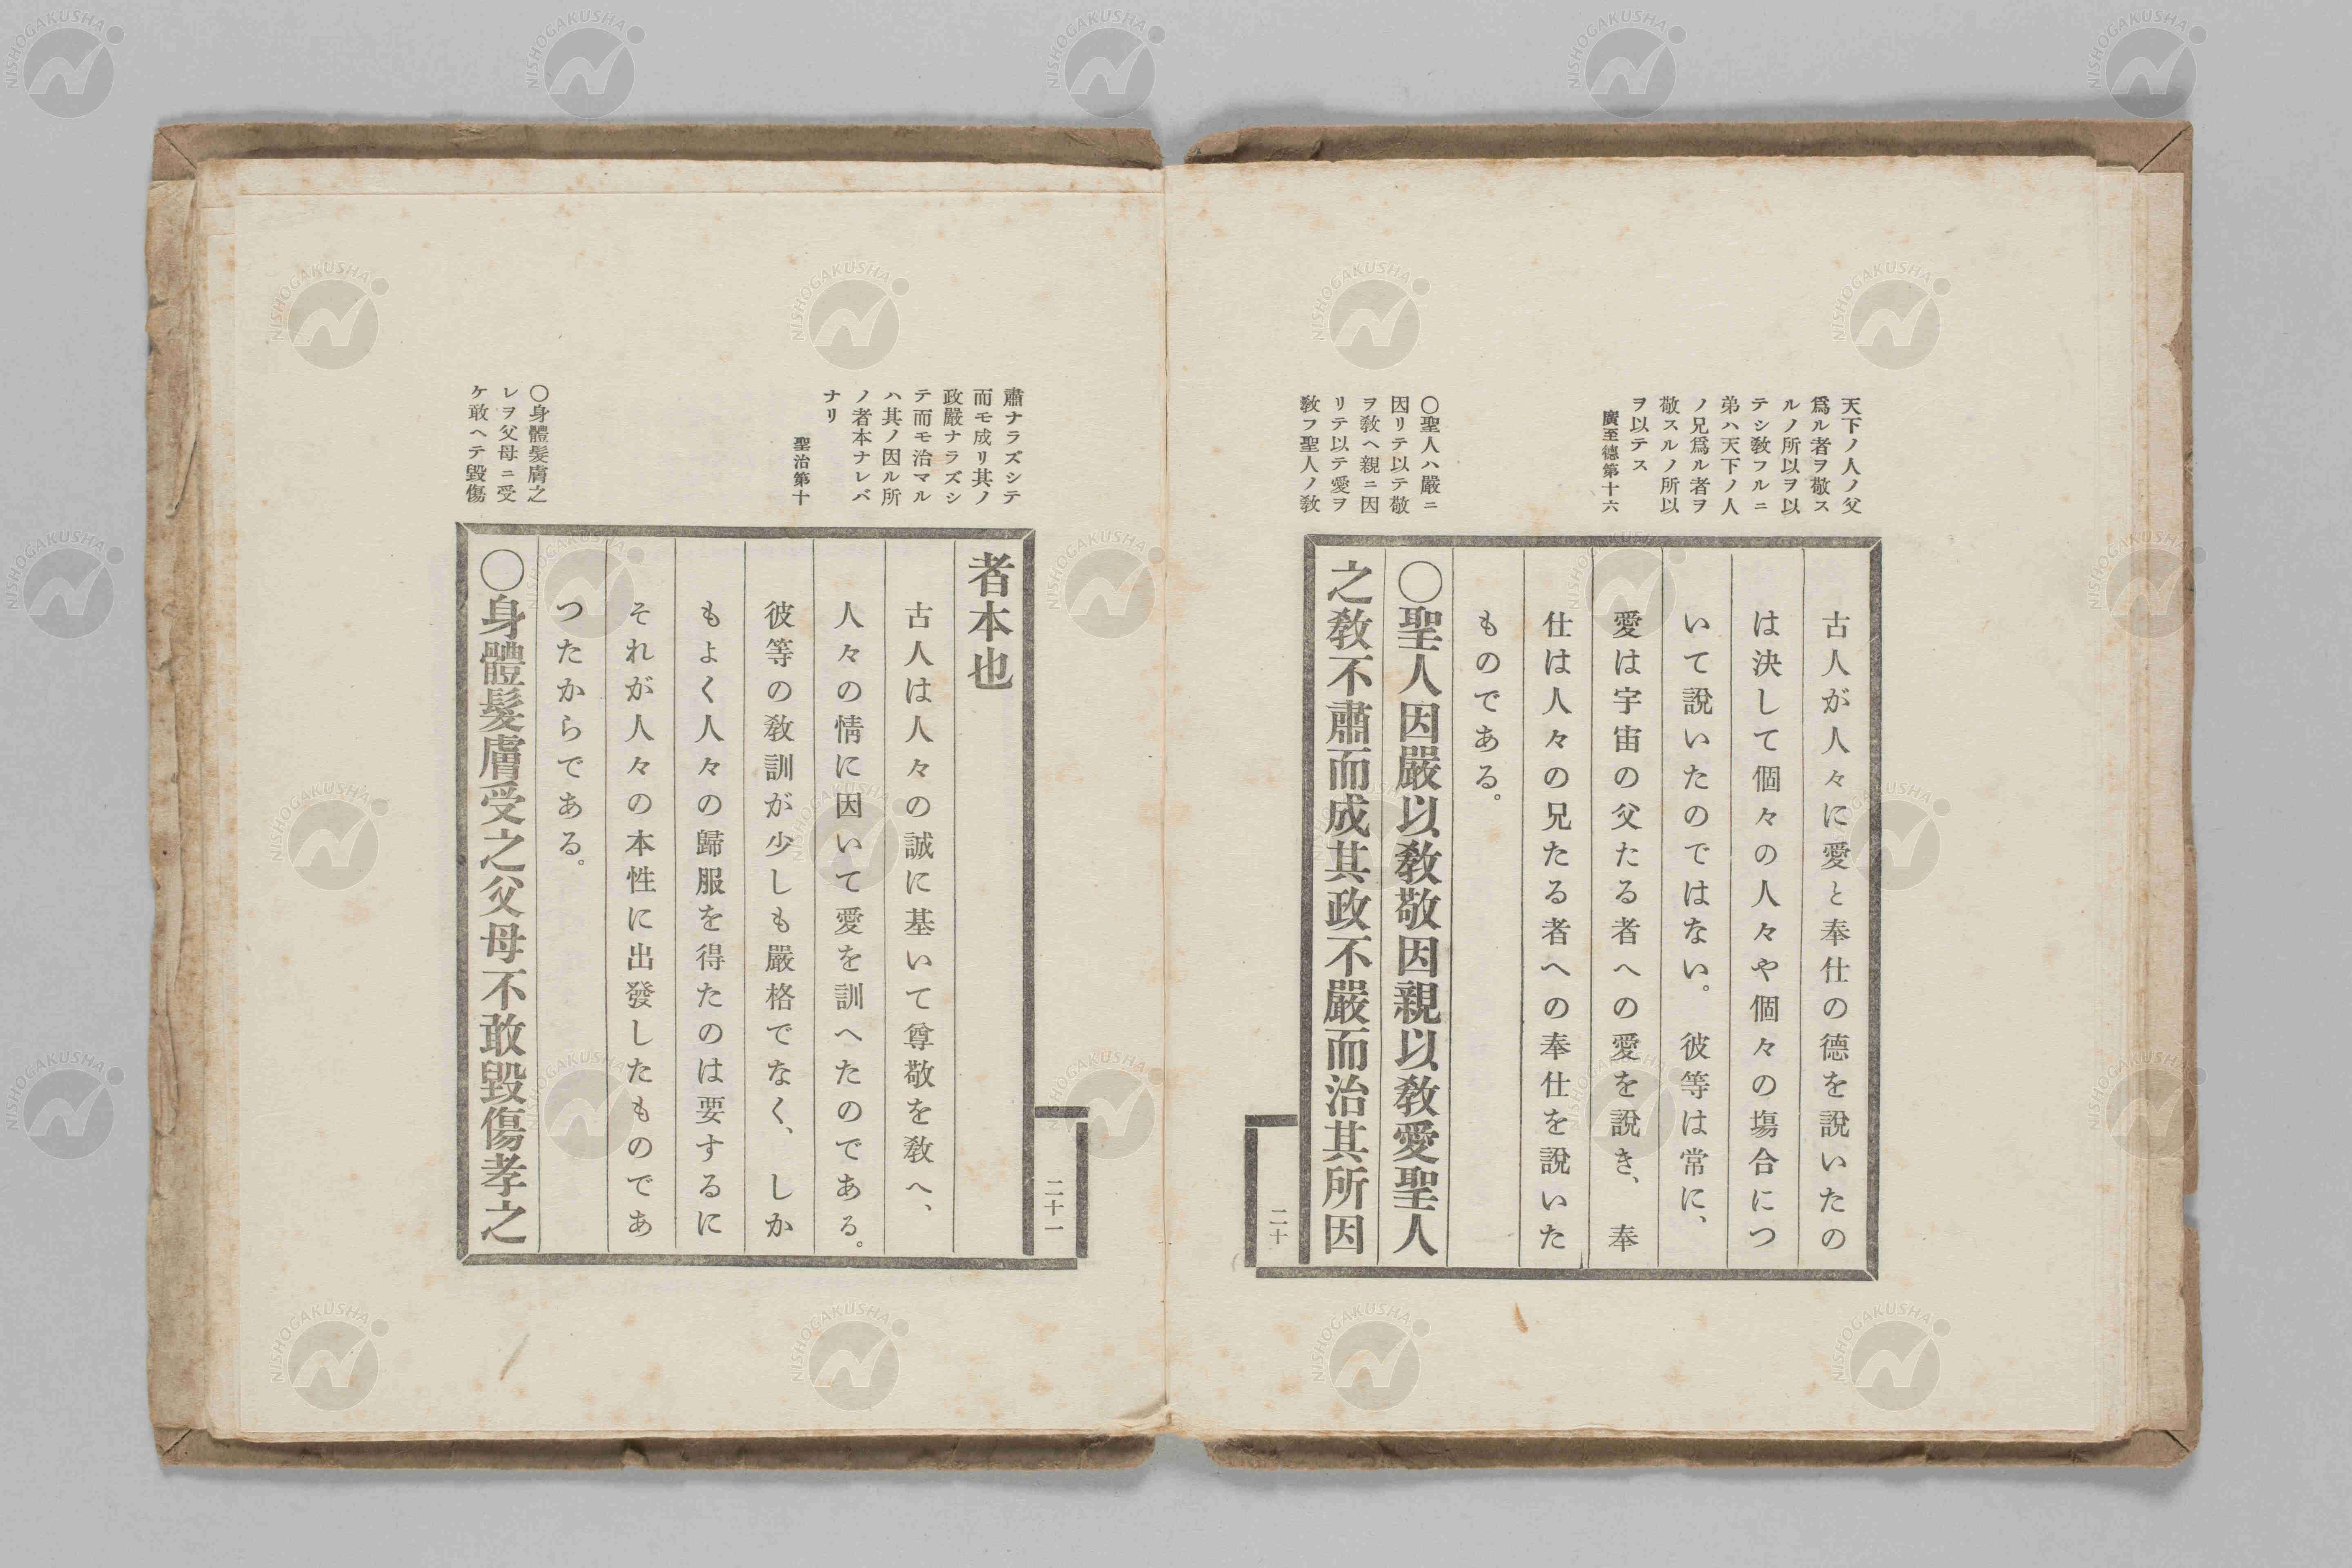 天下ノ人ノ父
爲ル者ヲ敬ス
ルノ所以ヲ以
テシ敎フルニ
弟ハ天下ノ人
ノ兄爲ル者ヲ
敬スルノ所以
ヲ以テス
廣至德第十六
〇聖人ハ嚴ニ
因リテ以テ敬
ヲ敎ヘ親ニ因
リテ以テ愛ヲ
敎フ聖人ノ敎
古人が人々に愛と奉仕の德を說いたの
は決して個々の人々や個々の塲合につ
いて說いたのではない。彼等は常に、
愛は宇宙の父たる者への愛を說き、奉
仕は人々の兄たる者への奉仕を說いた
ものである。
〇聖人因嚴以敎敬因親以敎愛聖人
之敎不肅而成其政不嚴而治其所因
二十
肅ナラズシテ
而モ成リ其ノ
政嚴ナラズシ
テ而モ治マル
ハ其ノ因ル所
ノ者本ナレバ
ナリ
聖治第十
〇身體髮膚之
レヲ父母ニ受
ケ敢ヘテ毀傷
二十一
者本也
古人は人々の誠に基いて尊敬を敎へ、
人々の情に因いて愛を訓へたのである。
彼等の敎訓が少しも嚴格でなく、しか
もよく人々の歸服を得たのは要するに
それが人々の本性に出發したものであ
つたからである。
〇身體髮膚受之父母不敢毀傷孝之
NISHOGAKUSHA